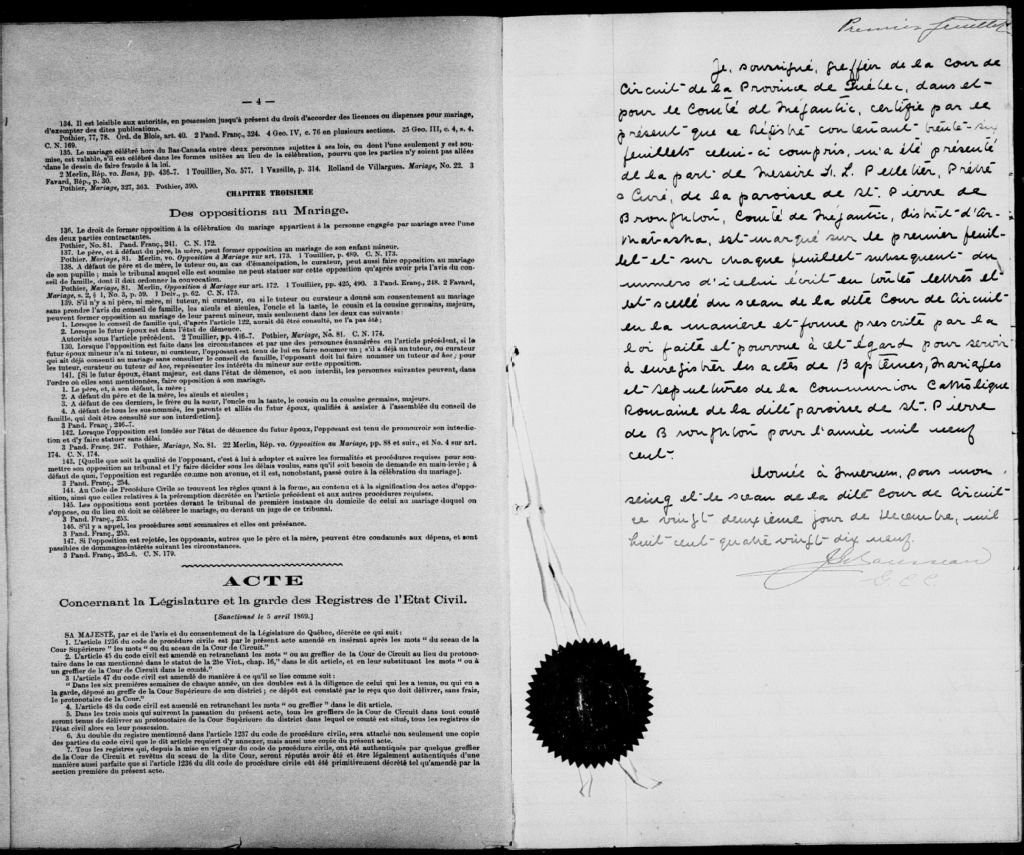 — 4 —
134. Il est loisible aux autorités, en possession jusqu'à présent du droit d'accorder des licences ou dispenses pour mariage,
d'exempter des dites publications.
Pothier, 77, 78. Ord. de Blois, art. 40. 2 Pand. Franç., 324. 4 Geo. IV, c. 76 en plusieurs sections. 25 Geo. III, c. 4, s. 4.
C. N. 169.
135. Le mariage célébré hors du Bas-Canada entre deux personnes sujettes à ses lois, ou dont l'une seulement y est sou-
mise, est valable, s'il est célébré dans les formes usitées au lieu de la célébration, pourvu que les parties n'y soient pas allées
dans le dessin de faire fraude à la loi.
2 Merlin, Rép. vo. Bans, pp. 436-7. 1 Touillier, No. 577. 1 Vazeille, p. 314. Rolland de Villargues. Mariage, No. 22. 3
Favard, Rép., p. 30.
Pothier, Mariage, 327, 363. Pothier, 390.
CHAPITRE TROISIEME
Des oppositions au Mariage.
136. Le droit de former opposition à la célébration du mariage appartient à la personne engagée par mariage avec l'une
des deux parties contractantes.
Pothier, No. 81. Pand. Franç., 241. C. N. 172.
137. Le père, et à défaut du père, la mère, peut former opposition au mariage de son enfant mineur.
Pothier, Mariage, 81. Merlin, vo. Opposition à Mariage sur art. 173. 1 Touillier, p. 489. C. N. 173.
138. A défaut de père et de mère, le tuteur ou, au cas d'émancipation, le curateur, peut aussi faire opposition au mariage
de son pupille; mais le tribunal auquel elle est soumise ne peut statuer sur cette opposition qu'après avoir pris l'avis du con-
seil de famille, dont il doit ordonner la convocation.
Pothier, Mariage, 81. Merlin, Opposition à Mariage sur art. 172. 1 Touillier, pp. 425, 490. 3 Pand. Franç., 248. 2 Favard,
Mariage, s. 2, § 1, No. 3, p. 59. 1 Delv., p. 62. C. N. 175.
139. S'il n'y a ni père, ni mère, ni tuteur, ni curateur, ou si le tuteur ou curateur a donné son consentement au mariage
sans prendre l'avis du conseil de famille, les aïeuls et aïeules, l'oncle et la tante, le cousin et la cousine germains, majeurs,
peuvent former opposition au mariage de leur parent mineur, mais seulement dans les deux cas suivants :
1. Lorsque le conseil de famille qui, d'après l'article 122, aurait dû être consulté, ne l'a pas été ;
2. Lorsque le futur époux est dans l'état de démence.
Autorités sous l'article précédent. 2 Touillier, pp. 416-7. Pothier, Mariage, No. 81. C. N. 174.
130. Lorsque l'opposition est faite dans les circonstances et par une des personnes énumérées en l'article précédent, si le
futur époux mineur n'a ni tuteur, ni curateur, l'opposant est tenu de lui en faire nommer un ; s'il a déjà un tuteur, ou curateur
qui ait déjà consenti au mariage sans consulter le conseil de famille, l'opposant doit lui faire nommer un tuteur ad hoc ; pour
les tuteur, curateur ou tuteur ad hoc, représenter les intérêts du mineur sur cette opposition.
141. [Si le futur époux, étant majeur, est dans l'état de démence, et non interdit, les personnes suivantes peuvent, dans
l'ordre où elles sont mentionnées, faire opposition à son mariage.
1. Le père, et, à son défaut, la mère ;
2. A défaut du père et de la mère, les aïeuls et aïeules ;
3. A défaut de ces derniers, le frère ou la sœur, l'oncle ou la tante, le cousin ou la cousine germains, majeurs.
4. A défaut de tous les sus-nommés, les parents et alliés du futur époux, qualifiés à assister à l'assemblée du conseil de
famille, qui doit être consulté sur son interdiction].
3 Pand. Franç., 246-7.
142. Lorsque l'opposition est fondée sur l'état de démence du futur époux, l'opposant est tenu de promouvoir son interdic-
tion et d'y faire statuer sans délai.
3 Pand. Franç. 247. Pothier, Mariage, No. 81. 22 Merlin, Rép. vo. Opposition au Mariage, pp. 88 et suiv., et No. 4 sur art.
174. C. N. 174.
143. [Quelle que soit la qualité de l'opposant, c'est à lui à adopter et suivre les formalités et procédures requises pour sou-
mettre son opposition au tribunal et l'y faire décider sous les délais voulus, sans qu'il soit besoin de demande en main-levée ; à
défaut de quoi, l'opposition est regardée comme non avenue, et il est, nonobstant, passé outre à la célébration du mariage].
3 Pand. Franç., 254.
144. Au Code de Procédure Civile se trouvent les règles quant à la forme, au contenu et à la signification des actes d'oppo-
sition, ainsi que celles relatives à la péremption décrétée en l'article précédent et aux autres procédures requises.
145. Les oppositions sont portées devant le tribunal de première instance du domicile de celui au mariage duquel on
s'oppose, ou du lieu où doit se célébrer le mariage, ou devant un juge de ce tribunal.
3 Pand. Franç., 253.
146. S'il y a appel, les procédures sont sommaires et elles ont préséance.
3 Pand. Franç., 253.
147. Si l'opposition est rejetée, les opposants, autres que le père et la mère, peuvent être condamnés aux dépens, et sont
passibles de dommages-intérêts suivant les circonstances.
3 Pand. Franç., 255-6. C. N. 179.
ACTE
Concernant la Législature et la garde des Registres de l'Etat Civil.
[Sanctionné le 5 avril 1869.]
SA MAJESTÉ, par et de l'avis et du consentement de la Législature de Québec, décrète ce qui suit :
1. L'article 1236 du code de procédure civile est par le présent acte amendé en insérant après les mots " du sceau de la
Cour Supérieure " les mots " ou du sceau de la Cour de Circuit."
2. L'article 45 du code civil est amendé en retranchant les mots " ou au greffier de la Cour de Circuit au lieu du protono-
taire dans le cas mentionné dans le statut de la 25e Vict., chap. 16," dans le dit article, et en leur substituant les mots " ou à
un greffier de la Cour de Circuit dans le comté."
3 L'article 47 du code civil est amendé de manière à ce qu'il se lise comme suit :
" Dans les six premières semaines de chaque année, un des doubles est à la diligence de celui qui les a tenus, ou qui en a
la garde, déposé au greffe de la Cour Supérieure de son district ; ce dépôt est constaté par le reçu que doit délivrer, sans frais,
le protonotaire de la Cour."
4. L'article 48 du code civil est amendé en retranchant les mots " ou greffier " dans le dit article.
5. Dans les trois mois qui suivront la passation du présent acte, tous les greffiers de la Cour de Circuit dans tout comté
seront tenus de délivrer au protonotaire de la Cour Supérieure du district dans lequel ce comté est situé, tous les registres de
l'état civil alors en leur possession.
6. Au double du registre mentionné dans l'article 1237 du code de procédure civile, sera attaché non seulement une copie
des parties du code civil que le dit article requiert d'y annexer, mais aussi une copie du présent acte.
7. Tous les registres qui, depuis la mise en vigueur du code de procédure civile, ont été authentiqués par quelque greffier
de la Cour de Circuit et revêtus du sceau de la dite Cour, seront réputés avoir été et être légalement authentiqués d'une
manière aussi parfaite que si l'article 1236 du dit code de procédure civile eût été primitivement décrété tel qu'amendé par la
section première du présent acte.
Premier feuillet
Je, soussigné, greffier de la Cour de
Circuit de la Province de Québec, dans et
pour le Comté de Mégantic, certifie par le
présent que ce Régistre contenant trente-six
feuillets celui-ci compris, m'a été présenté
de la part de Messire H. L. Pelletier, Prêtre
& Curé, de la paroisse de St. Pierre de
Broughton, Comté de Mégantic, district d'Ar-
thabaska, est marqué sur le premier feuil-
let et sur chaque feuillet subséquent du
numéro d'icelui écrit en toutes lettres et
est scellé du sceau de la dite Cour de Circuit
en la manière et forme prescrite par la
loi faite et pourvue à cet égard pour servir
à enregistrer les actes de Baptêmes, Mariages
et sépultures de la Communion Catholique
Romaine de la dite paroisse de St. Pierre
de Broughton pour l'année mil neuf
cent.
Donnée à Inverness, sous mon
seing et le sceau de la dite Cour de Circuit
ce vingt deuxième jour de Décembre, mil
huit cent quatre vingt dix neuf.
G. C. C.